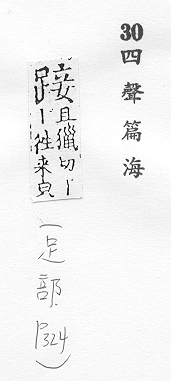 30 四聲篇海
踥 且獵切丨
丨徃来皃
(足部 P324)